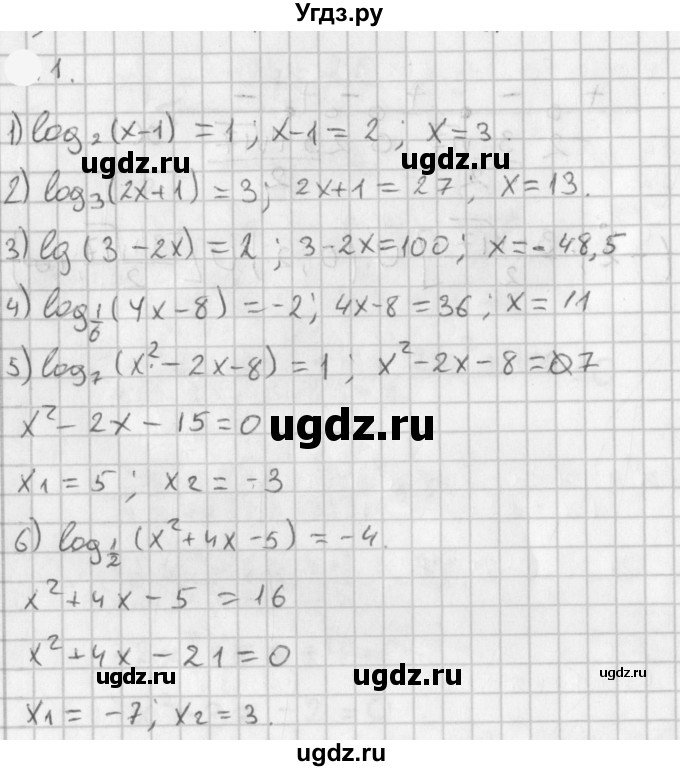 Угдз.ру
.1.
1) log₂(x-1) = 1; x-1 = 2; x = 3.
ugdz.ru ugdz.ru
2) log₃(2x+1) = 3; 2x+1 = 27; x = 13.
3) lg(3-2x) = 2; 3-2x=100; x=-48,5
4) log_{1/6}(4x-8) = -2; 4x-8 = 36; x = 11
5) log₇(x²-2x-8) = 1; x²-2x-8 = 7
x²-2x-15=0
ugdz.ru
x1 = 5; x2 = -3
6) log_{1/2}(x²+4x-5) = -4.
x²+4x-5 = 16
x²+4x-21=0
ugdz.ru ugdz.ru ugdz.ru
x1 = -7; x2 = 3.
ugdz.ru